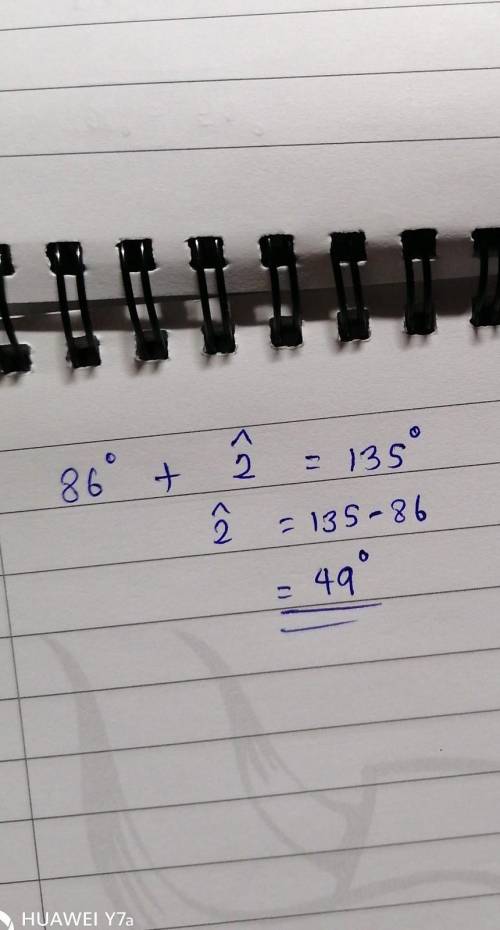 86° + 2̂ = 135°
2̂ = 135 - 86
= 49°
HUAWEI Y7a